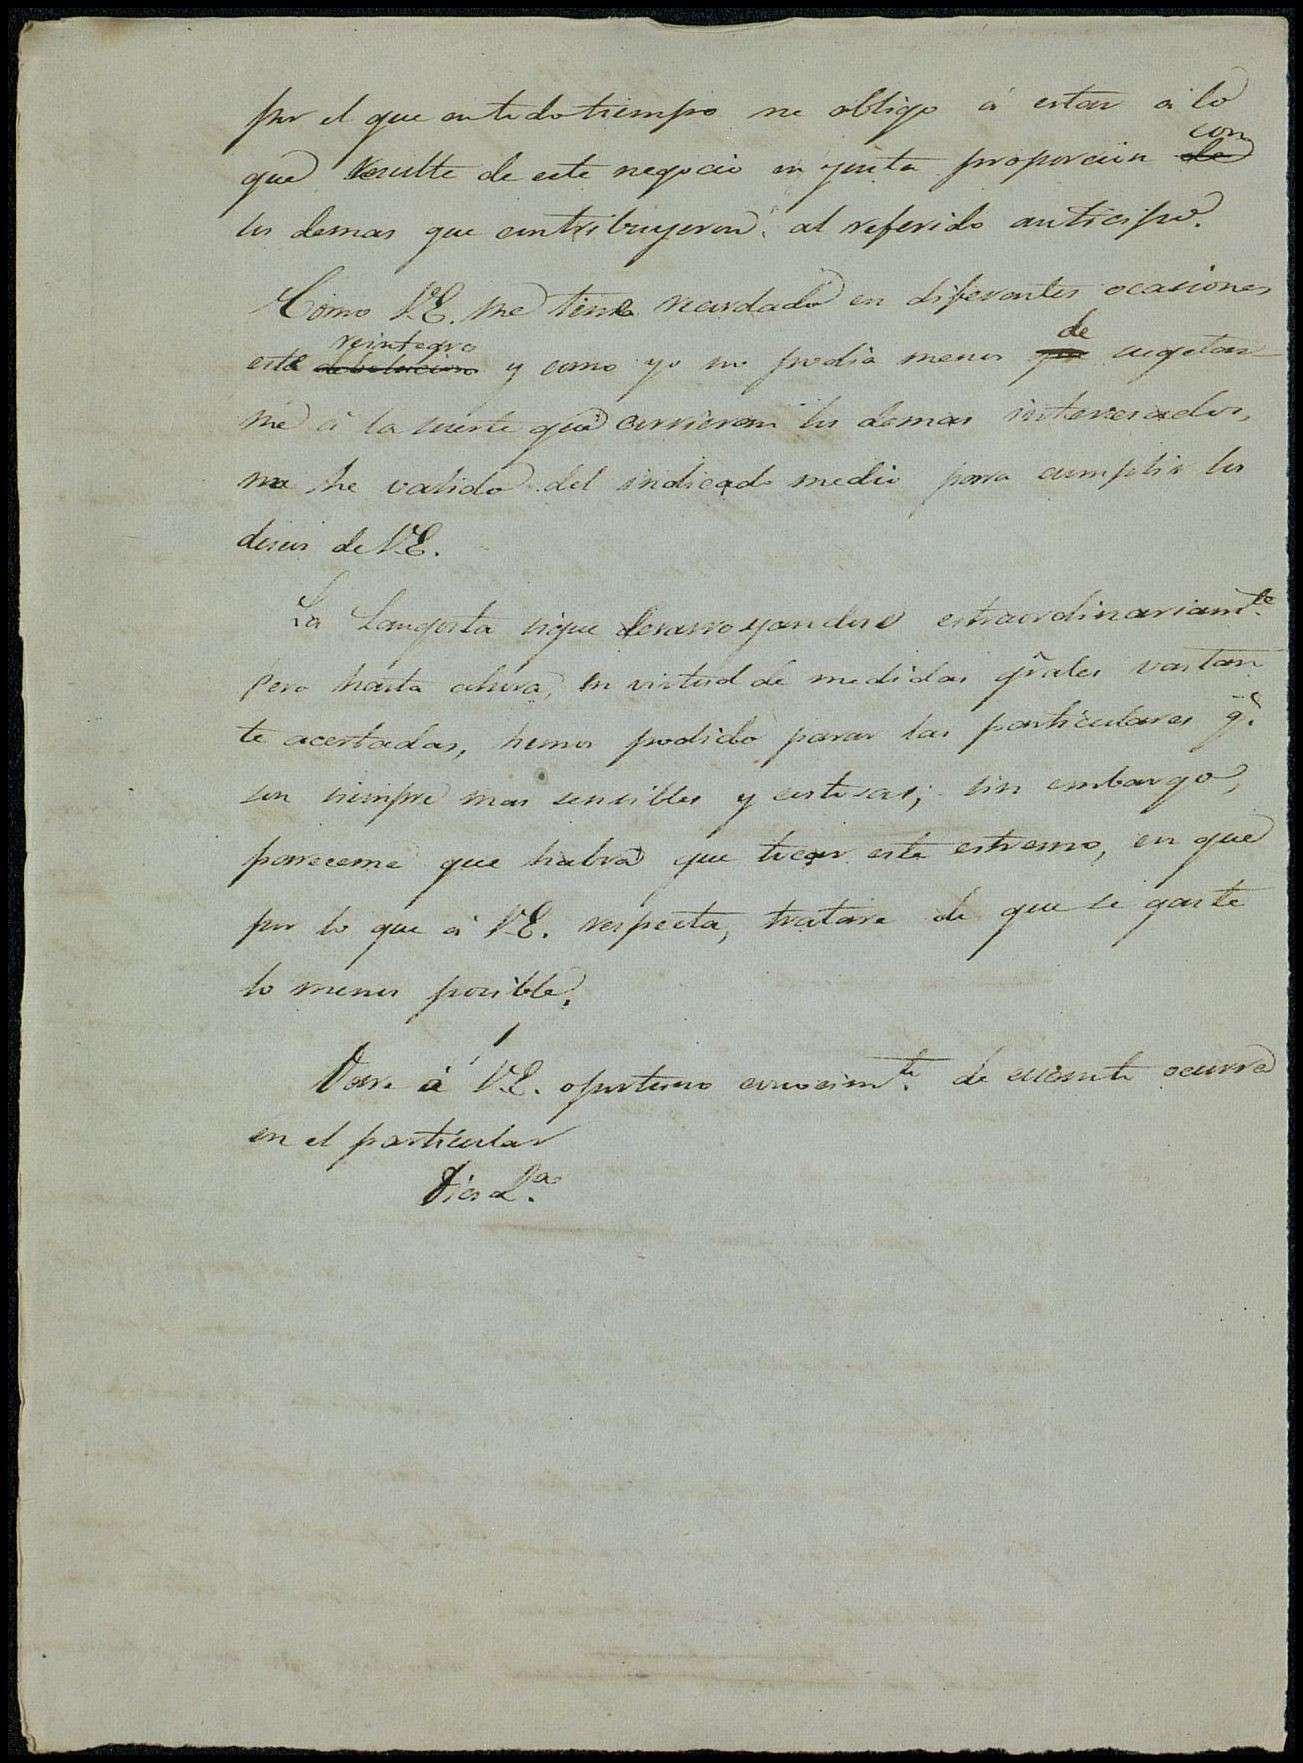 por el que en todo tiempo me obligo á estar á lo
que resulte de este negocio en justa proporcion de con
los demas que contribuyeron al referido anticipo.
Como V.E. me tiene recordado en diferentes ocasiones
este reintegro y como yo no podia menos que de sugetar
me á la suerte que corrieran los demas interesados,
me he valido del indicado medio para cumplir los
deseos de V.E.
La Langosta sigue desarroyandose estraordinariamte.
Pero hasta ahora, en virtud de medidas grales vastan
te acertadas, hemos podido parar las particulares q.e
son siempre mas sensibles y costosas; sin embargo,
pareceme que habrá que tocar este estremo, en que
por lo que á V.E. respecta, tratare de que se gaste
lo menos posible.
Dare á V.E. oportuno conocimto. de cuanto ocurra
en el particular
Dios &.a